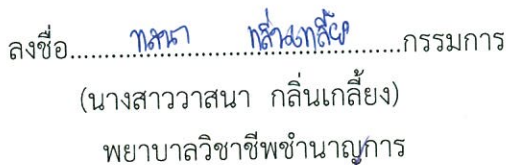 ลงชื่อ....วาสนา กลิ่นเกลี้ยง....กรรมการ
(นางสาววาสนา กลิ่นเกลี้ยง)
พยาบาลวิชาชีพชำนาญการ